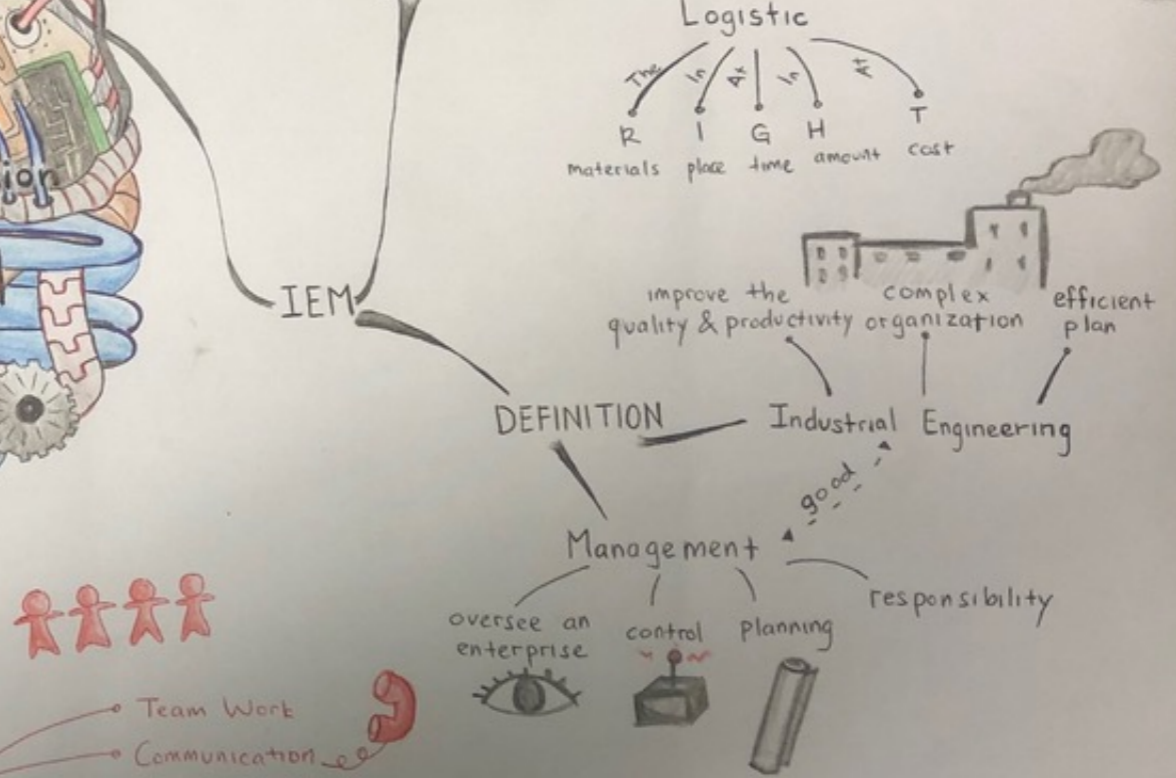 Logistic
The In At In At
R I G H T
materials place time amount cost
ion
IEM
improve the
quality & productivity
complex
organization
efficient
plan
DEFINITION
Industrial Engineering
good
Management
oversee an
enterprise
control
planning
responsibility
Team Work
Communication